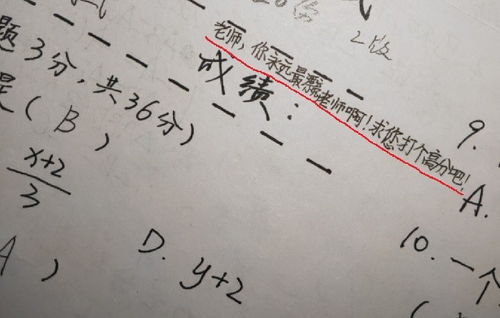 2版
老师，你永远最亲老师啊！求您打个高分吧！
成绩：
题3分，共36分）
（B）
x+2
3
9.
A.
10.一个
A ）
D. y+2